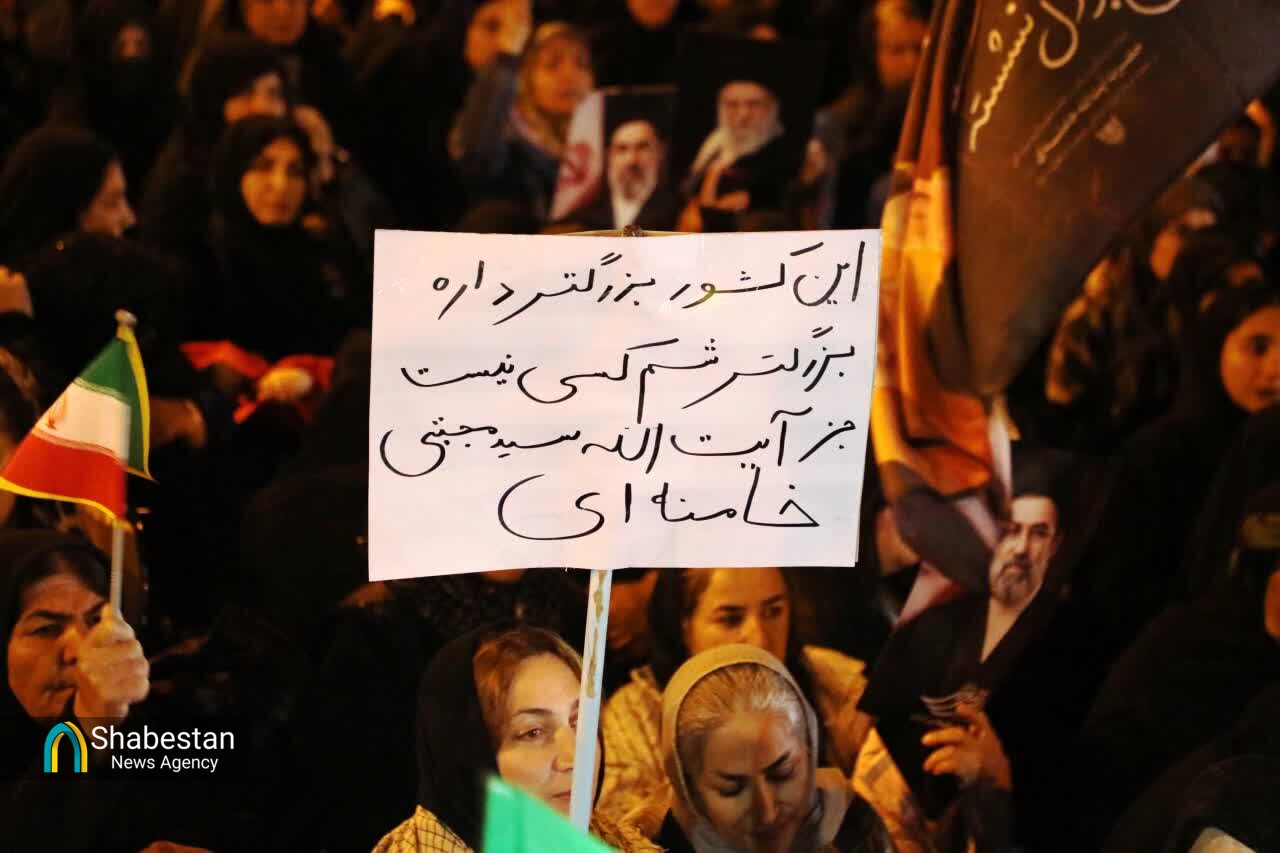 این کشور بزرگتر داره
بزرگترشم کسی نیست
جز آیت الله سید مجتبی
خامنه ای
نشسته
Shabestan
News Agency